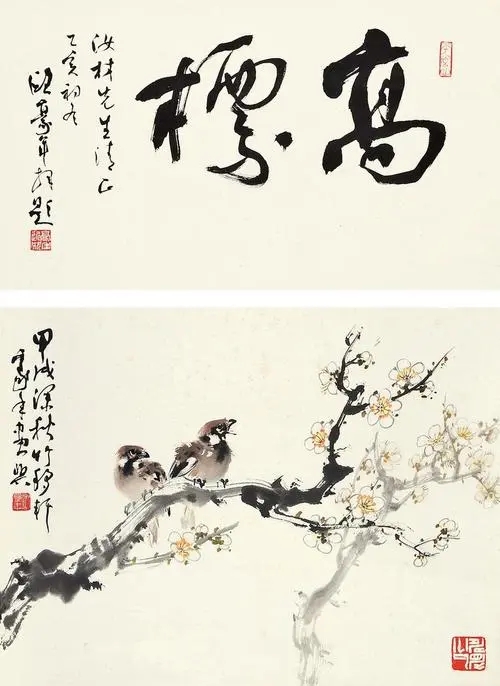 高標
汝材先生清正
乙亥初冬
歐豪年題
甲戌深秋竹軒
豪年畫